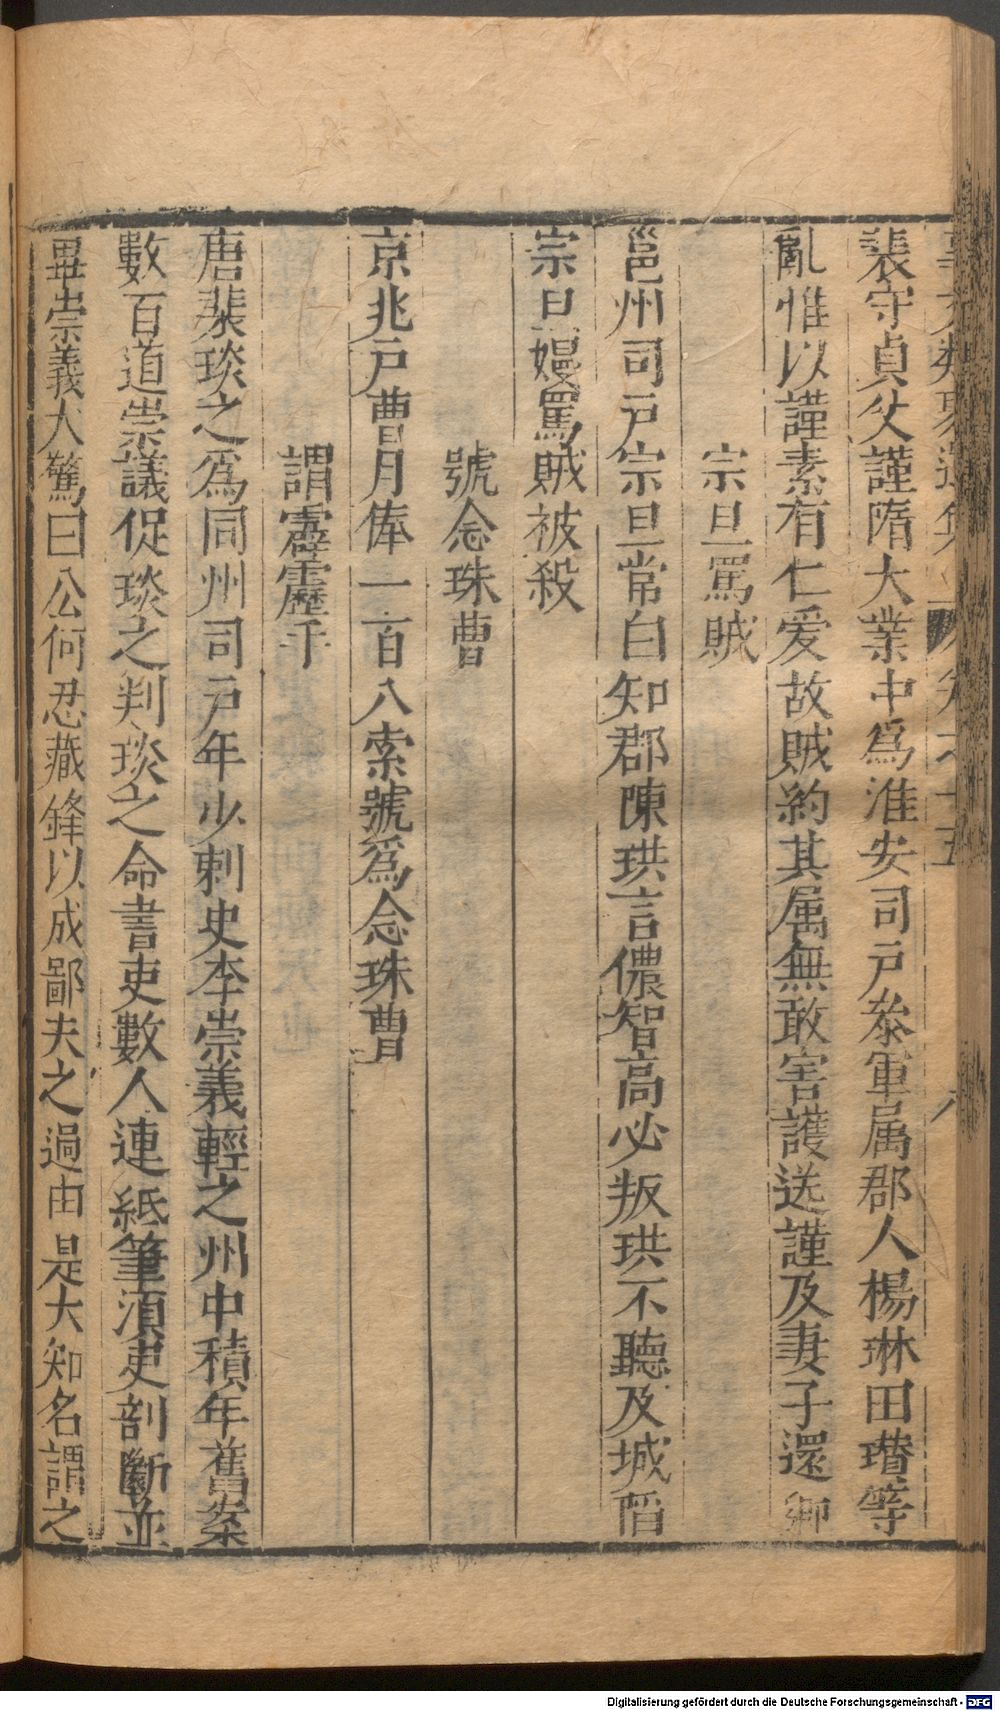 裴守貞父謹隋大業中爲淮安司戸叅軍属郡人楊琳田瓚等
亂惟以謹素有仁爱故賊約其属無敢害護送謹及妻子還鄉
宗旦罵賊
邕州司戸宗旦常白知郡陳珙言儂智高必叛珙不聽及城陷
宗旦嫚罵賊被殺
號念珠曹
京兆戸曹月俸一百八索號爲念珠曹
謂霹靂手
唐裴琰之爲同州司戸年少刺史李崇義輕之州中積年舊案
數百道崇議促琰之判琰之命書吏數人連紙筆須吏剖斷並
畢崇義大驚曰公何忍藏鋒以成鄙夫之過由是大知名謂之
Digitalisierung gefördert durch die Deutsche Forschungsgemeinschaft - DFG